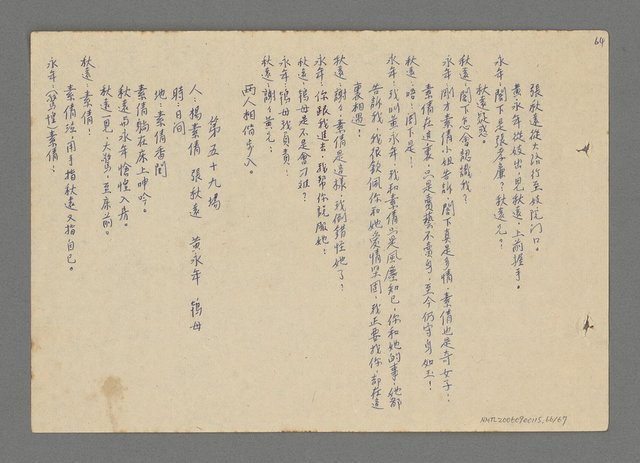 64
張秋遠從大路行至妓院門口。
黃永年從妓出，見秋遠，上前握手。
永年：閣下是張孝廉？秋遠兄。
秋遠疑惑。
秋遠：閣下怎會認識我？
永年：剛才素倩小姐告訴，閣下真是多情，素倩也是奇女子！
素倩在這裏，只是賣藝不賣身，至今仍守身如玉！
秋遠：唔！閣下是！
永年：我叫黃永年，我和素倩只是風塵知己，你和她的事，她都
告訴我，我很欽佩你和她愛情堅固，我正要找你，卻在這
裏相遇！
秋遠：謝謝！素倩是這樣，我倒錯怪她了！
永年：你跟我進去，我幫你說服她！
秋遠：鴇母是不是會刁祖？
永年：鴇母我負責！
秋遠：謝謝黃兄！
兩人相偕步入。
第五十九場
人：楊素倩 張秋遠 黃永年 鴇母
時：日間
地：素倩香閨
素倩躺在床上呻吟。
秋遠與永年愴惶入房。
秋遠一見，大驚，至床前。
秋遠：素倩！
素倩泣，用手指秋遠又指自己。
永年：（驚惶）素倩！
NMTL20060900115_66/67